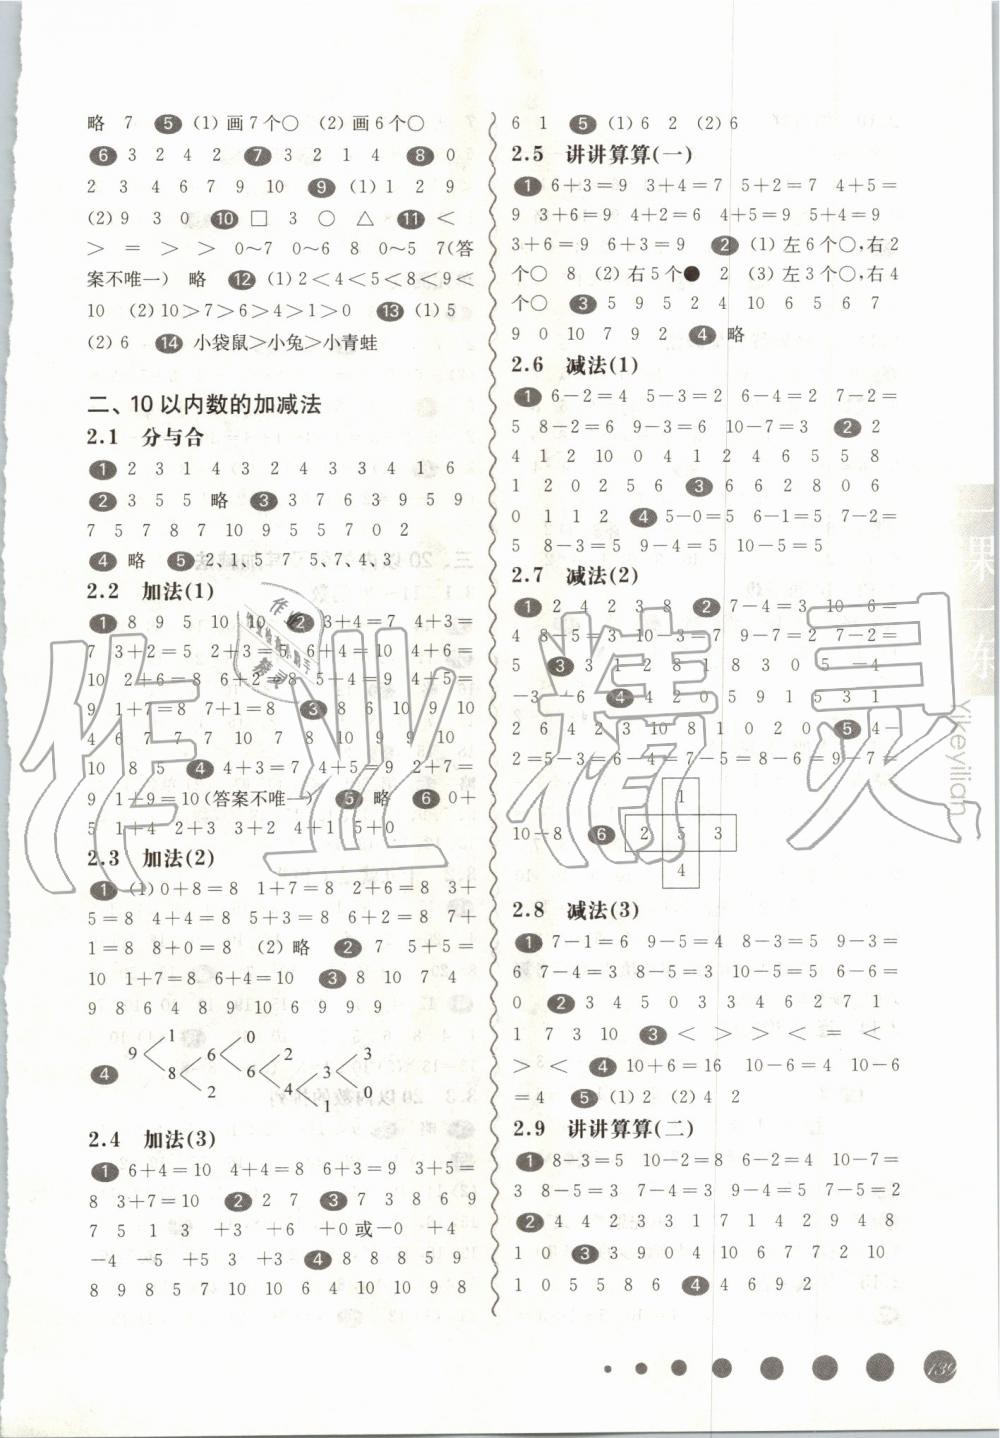 略 7 5 (1)画7个○ (2)画6个○
6 3 2 4 2 7 3 2 1 4 8 0
2 3 4 6 7 9 10 9 (1)1 2 9
(2)9 3 0 10 □ 3 ○ △ 11 <
> = > > 0~7 0~6 8 0~5 7(答
案不唯一) 略 12 (1)2<4<5<8<9<
10 (2)10>7>6>4>1>0 13 (1)5
(2)6 14 小袋鼠>小兔>小青蛙
二、10以内数的加减法
2.1 分与合
1 2 3 1 4 3 2 4 3 3 4 1 6
2 3 5 5 略 3 3 7 6 3 9 5 9
7 5 7 8 7 10 9 5 5 7 0 2
4 略 5 2、1、5 7 5、7、4、3
2.2 加法(1)
1 8 9 5 10 10 2 3+4=7 4+3=
7 3+2=5 2+3=5 6+4=10 4+6=
10 2+6=8 6+2=8 5+4=9 4+5=
9 1+7=8 7+1=8 3 8 6 10 9 10
4 6 7 7 7 10 7 8 10 9 9 10
10 8 5 4 4+3=7 4+5=9 2+7=
9 1+9=10(答案不唯一) 5 略 6 0+
5 1+4 2+3 3+2 4+1 5+0
2.3 加法(2)
1 (1)0+8=8 1+7=8 2+6=8 3+
5=8 4+4=8 5+3=8 6+2=8 7+
1=8 8+0=8 (2)略 2 7 5+5=
10 1+7=8 6+4=10 3 8 10 7 4
9 8 6 4 8 9 10 6 9 9 9
4 9 1 8 6 2 0 6 2 4 3 1 3 0
2.4 加法(3)
1 6+4=10 4+4=8 6+3=9 3+5=
8 3+7=10 2 2 7 3 7 3 8 6 9
7 5 1 3 +3 +6 +0或-0 +4
-4 -5 +5 3 +3 4 8 8 8 5 9
8 9 8 5 7 10 10 6 4 10 10 9 8
6 1 5 (1)6 2 (2)6
2.5 讲讲算算(一)
1 6+3=9 3+4=7 5+2=7 4+5=
9 3+6=9 4+2=6 4+5=9 5+4=9
3+6=9 6+3=9 2 (1)左6个○,右2
个○ 8 (2)右5个● 2 (3)左3个○,右4
个○ 3 5 9 5 2 4 10 6 5 6 7
9 0 10 7 9 2 4 略
2.6 减法(1)
1 6-2=4 5-3=2 6-4=2 7-2=
5 8-2=6 9-3=6 10-7=3 2 2
4 1 2 10 0 4 1 2 4 6 5 5 8
1 2 0 2 5 6 3 6 6 2 8 0 6
0 1 1 2 4 5-0=5 6-1=5 7-2=
5 8-3=5 9-4=5 10-5=5
2.7 减法(2)
1 2 4 2 3 8 2 7-4=3 10-6=
4 8-5=3 10-3=7 9-7=2 7-2=
5 3 3 1 2 8 1 8 3 0 5 -4
-3 -6 4 4 2 0 5 9 1 5 3 1
2 6 4 2 3 10 8 1 0 2 0 5 4-
2=5-3=6-4=7-5=8-6=9-7=
10-8 6 1 2 5 3 4
2.8 减法(3)
1 7-1=6 9-5=4 8-3=5 9-3=
6 7-4=3 8-5=3 10-5=5 6-6=
0 2 3 4 5 0 3 3 4 6 2 7 1
1 7 3 10 3 < > > < = <
> > < 4 10+6=16 10-6=4 10-6
=4 5 (1)2 (2)4 2
2.9 讲讲算算(二)
1 8-3=5 10-2=8 6-2=4 10-7=
3 8-5=3 7-4=3 9-4=5 7-5=2
2 4 4 2 3 3 1 7 1 4 2 9 4 8
1 0 3 3 9 0 4 10 6 7 7 2 10
1 0 5 5 8 6 4 4 6 9 2
一课一练
Yikeyilian
139
作业精灵